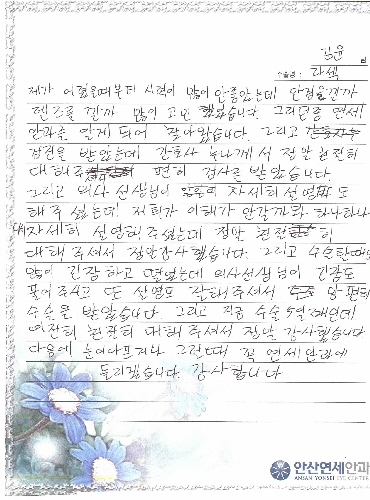 김윤 님
수술명 : 라섹
제가 어렸을때부터 시력이 많이 안좋았는데 안경을낄까
렌즈를 낄까 많이 고민 했었습니다. 그러던중 연세
안과를 알게 되어 찾아왔습니다. 그리고
검진을 받았는데 간호사 누나께서 정말 친절히
대해주 편히 검사를 받았습니다.
그리고 의사 선생님이 자세히 설명 도
해주 셨는데 저희가 이해가 안갈까봐 하나하나
자세히 설명해주셨는데 정말 친절 히
대해 주셔서 정말감사했습니다. 그리고 수술
많이 긴장 하고 떨었는데 의사선생님이 긴장도
풀어주시고 또 설명도 잘해주셔서 맘 편히
수술을 받았습니다. 그리고 지금 수술 5일 째인데
여전히 친절히 대해 주셔서 정말 감사했습니다
다음에 눈이나프거나 그럴때 꼭 연세안과에
들리겠습니다. 감사합니다
안산연세안과
ANSAN YONSEI EYE CENTER